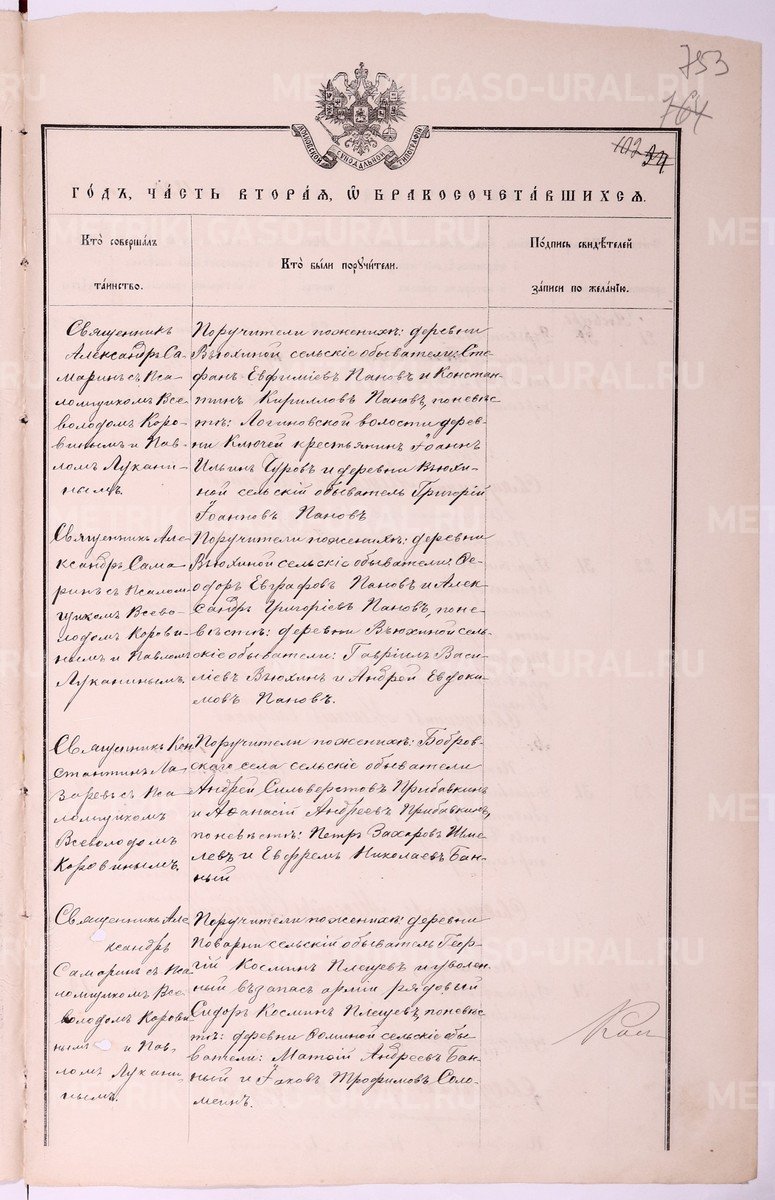 753
764
102 94
МОСКОВСКОЙ СѴНОДАЛЬНОЙ ТИПОГРАФІИ
ГО́ДЪ, ЧА́СТЬ ВТОРА́Я, Ѽ БРАКОСОЧЕТА́ВШИХСЯ.
Кто̀ совершалъ
та́инство.
Кто̀ бы́ли порꙋчи́тели.
По́дпись свидѣ́телей
за́писи по жела́нію.
Священникъ
Александръ Са-
маринъ съ Пса-
ломщикомъ Все-
володомъ Коро-
винымъ и Пав-
ломъ Лукани-
нымъ.
Поручители по женихѣ: деревни
Вьюхиной сельскіе обыватели: Сте-
фанъ Евфиміевъ Пановъ и Констан-
тинъ Кирилловъ Пановъ, по невѣс-
тѣ: Логиновской волости дерев-
ни Ключей крестьянинъ Іоаннъ
Ильинъ Чуровъ и деревни Вьюхи-
ной сельскій обыватель Григорій
Іоанновъ Пановъ
Священникъ Але-
ксандръ Сама-
ринъ съ Псалом-
щикомъ Всево-
лодомъ Корови-
нымъ и Павломъ
Луканинымъ.
Поручители по женихѣ: деревни
Вьюхиной сельскіе обыватели Ѳе-
одоръ Евграфовъ Пановъ и Алек-
сандръ Григоріевъ Пановъ, по не-
вѣстѣ: деревни Вьюхиной сель-
скіе обыватели: Гавріилъ Васи-
ліевъ Вьюхинъ и Андрей Евдоки-
мовъ Пановъ.
Священникъ Кон-
стантинъ Ла-
заревъ съ Пса-
ломщикомъ
Всеволодомъ
Коровинымъ.
Поручители по женихѣ: Бобров-
скаго села сельскіе обыватели
Андрей Сильверстовъ Прибавкинъ
и Аѳанасій Андреевъ Прибавкинъ,
по невѣстѣ: Петръ Захаровъ Шме-
левъ и Евфремъ Николаевъ Бан-
ный
Священникъ Але-
ксандръ
Самаринъ съ Пса-
ломщикомъ Все-
володомъ Корови-
нымъ и Пав-
ломъ Лукани-
нымъ.
Поручители по женихѣ: деревни
Поварни сельскій обыватель Геор-
гій Косминъ Плещевъ и уволен-
ный въ запасъ арміи рядовой
Сидоръ Косминъ Плещевъ, по невѣс-
тѣ: деревни Ѳоминой сельскіе обы-
ватели: Матѳій Андреевъ Бан-
ный и Іаковъ Трофимовъ Соло-
меинъ.
METRIKI.GASO-URAL.RU